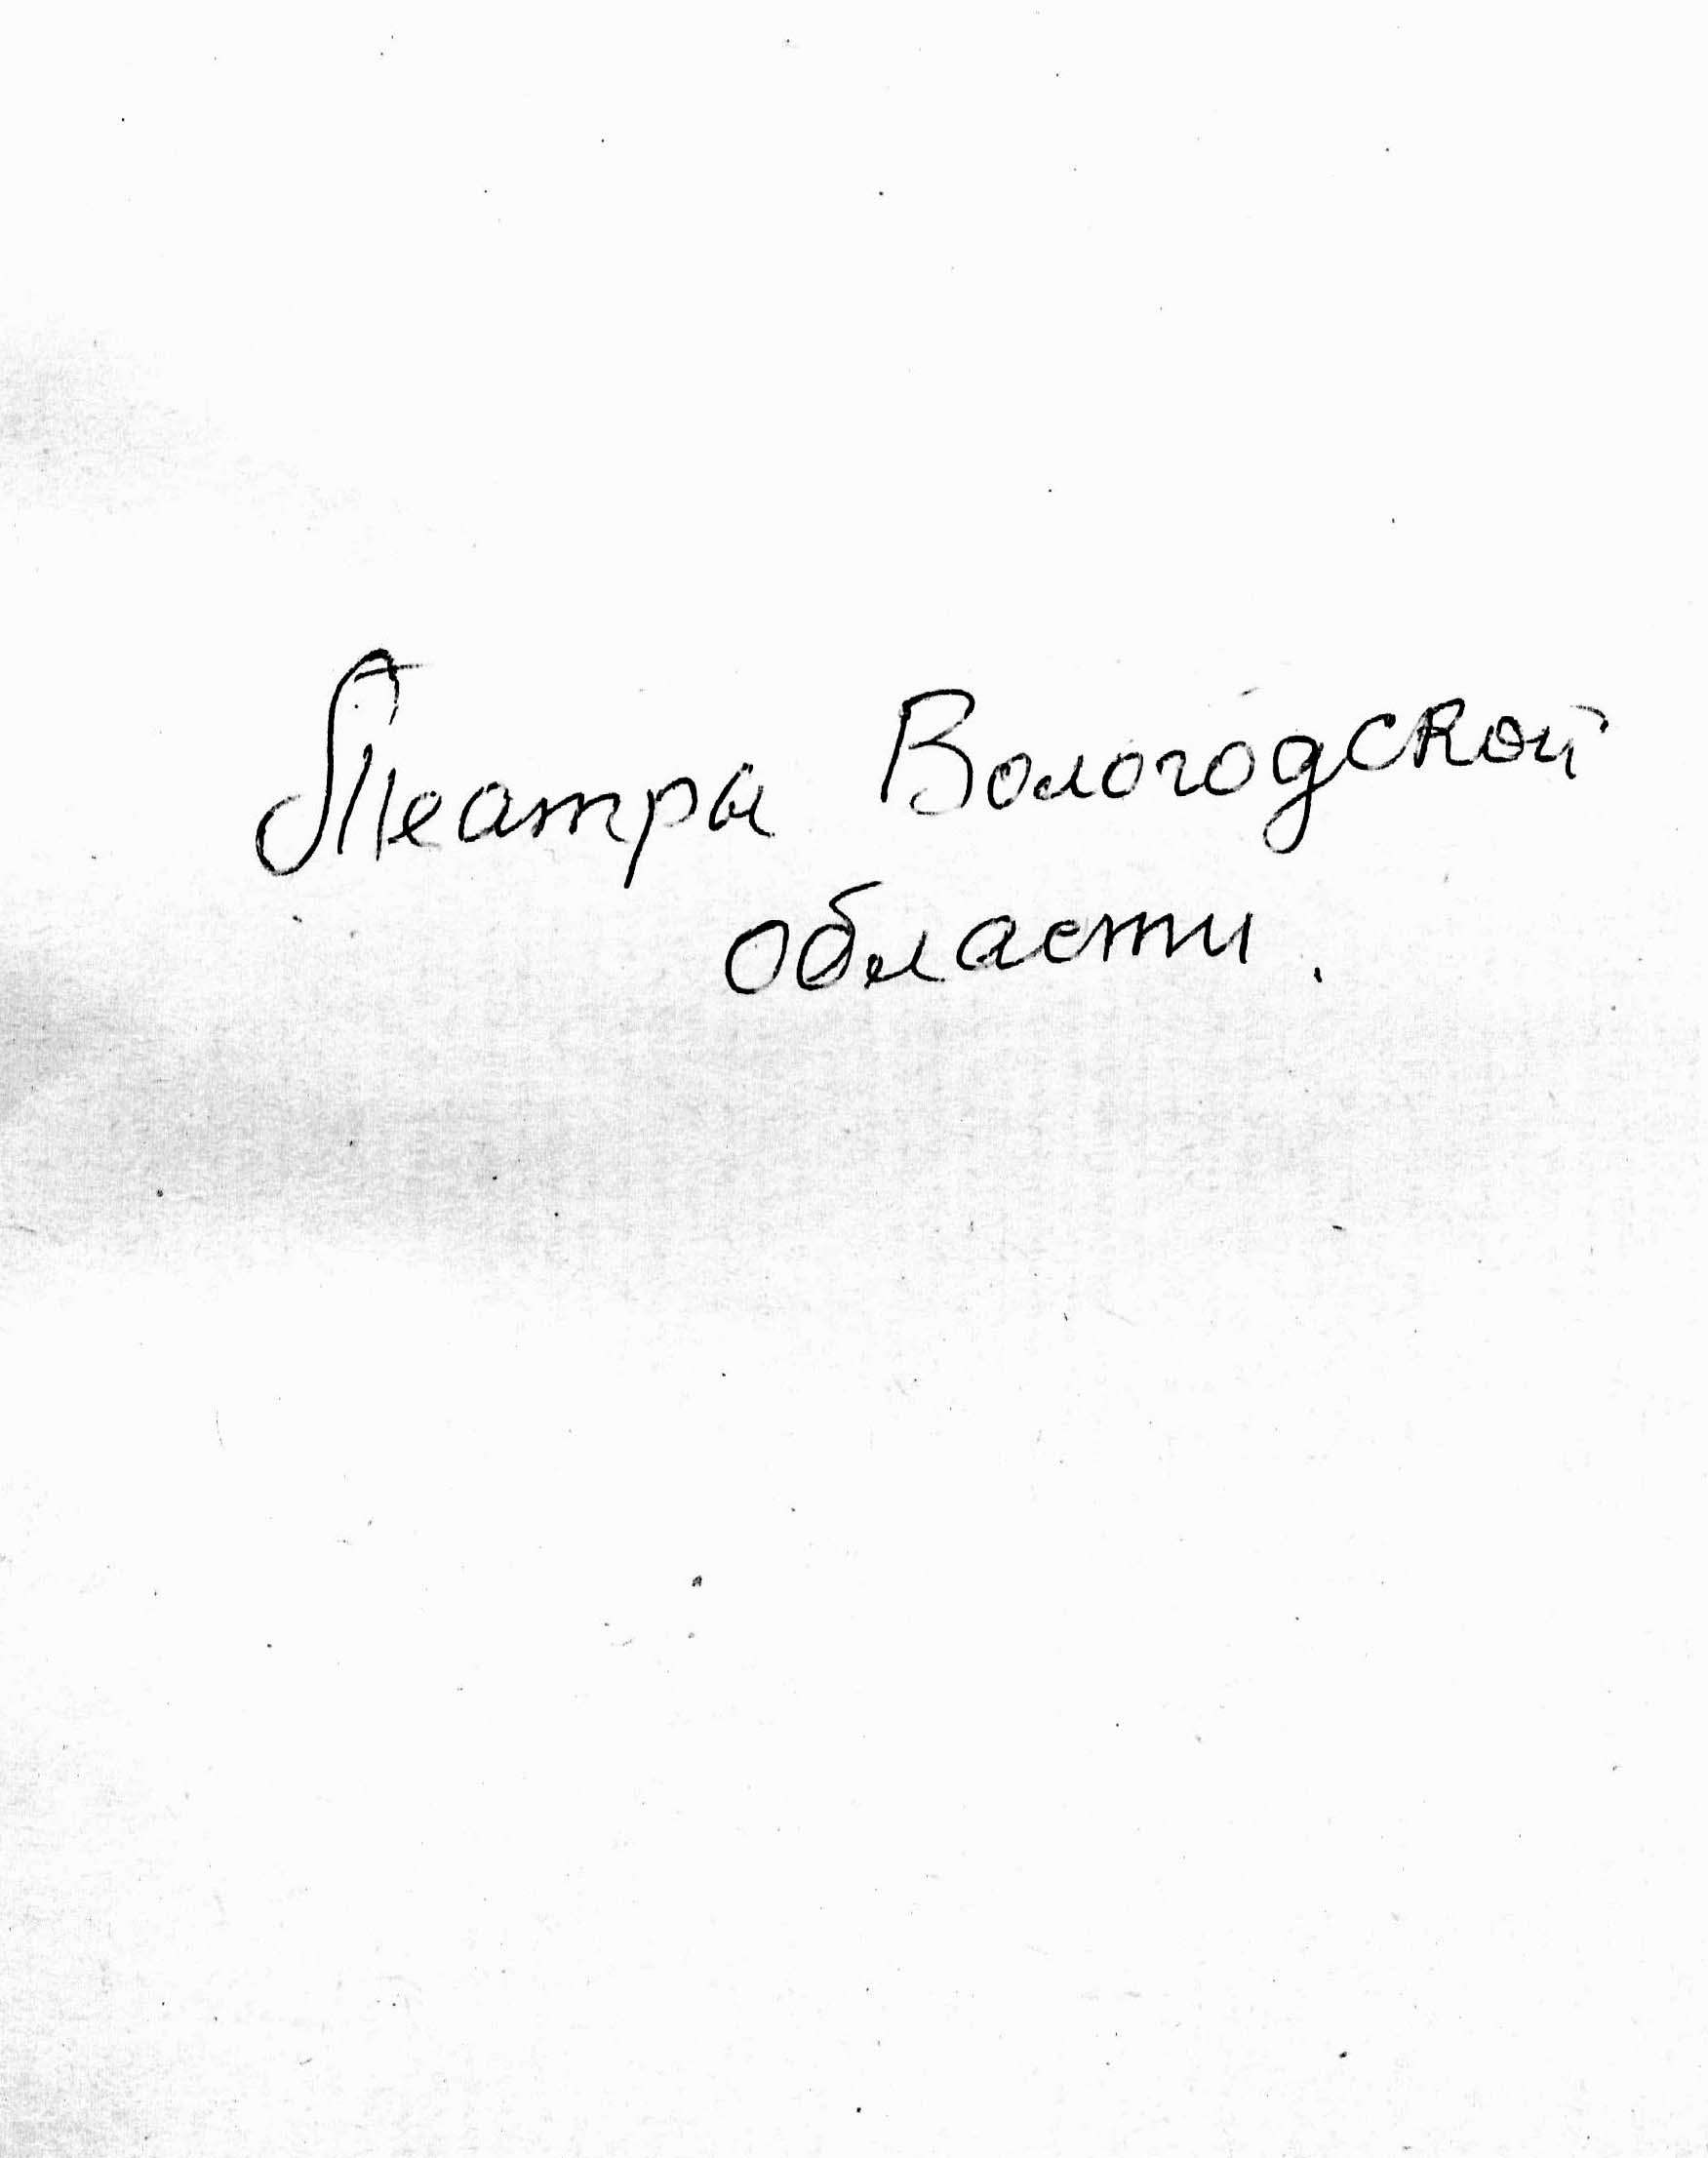 Театры Вологодской
области.